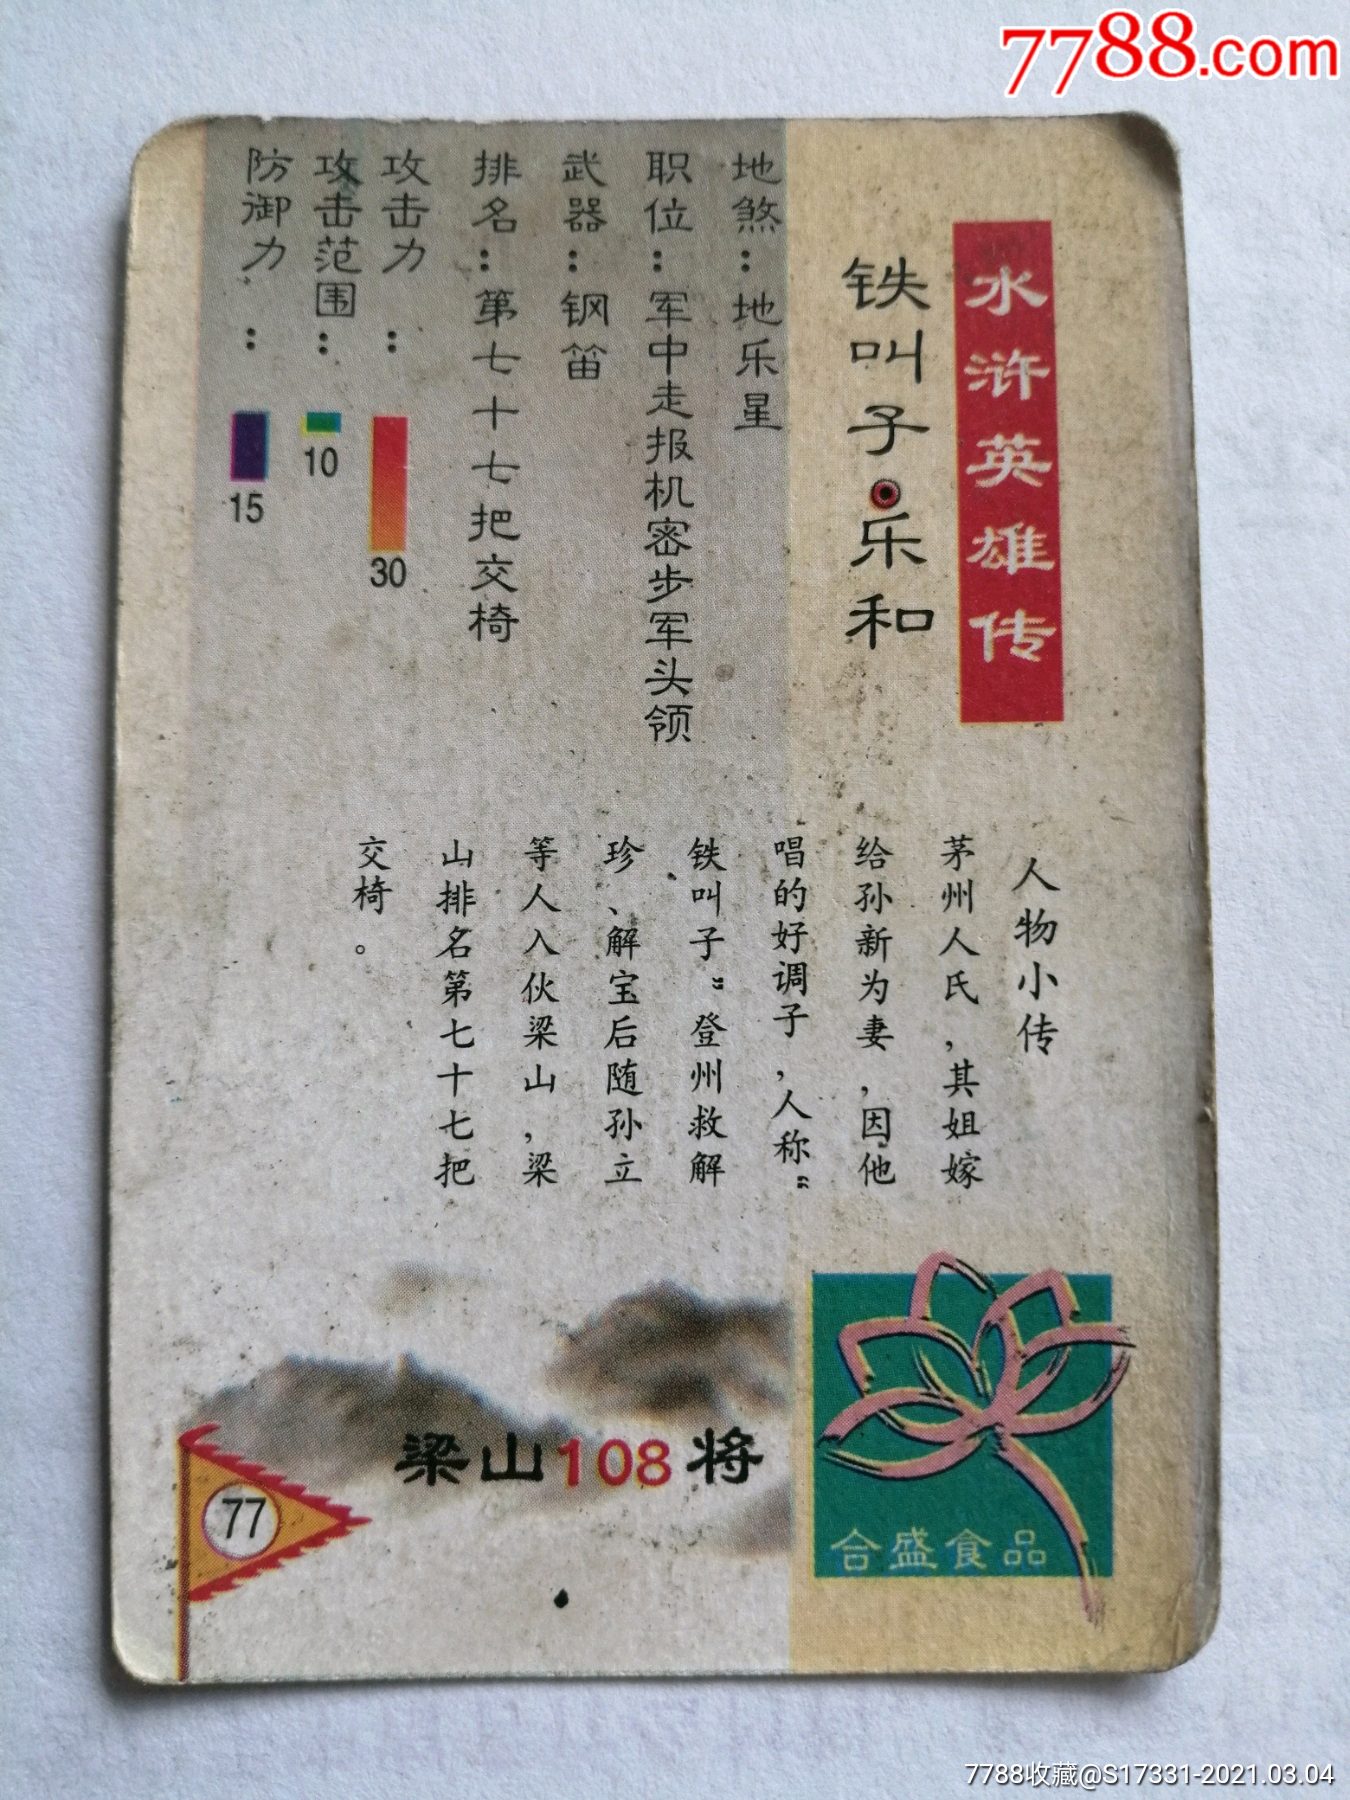 7788.com
水浒英雄传
铁叫子·乐和
地煞：地乐星
职位：军中走报机密步军头领
武器：钢笛
排名：第七十七把交椅
攻击力：30
攻击范围：10
防御力：15
人物小传
茅州人氏，其姐嫁
给孙新为妻，因他
唱的好调子，人称“
铁叫子”登州救解
珍、解宝后随孙立
等人入伙梁山，梁
山排名第七十七把
交椅。
梁山108将
77
合盛食品
7788收藏@S17331-2021.03.04